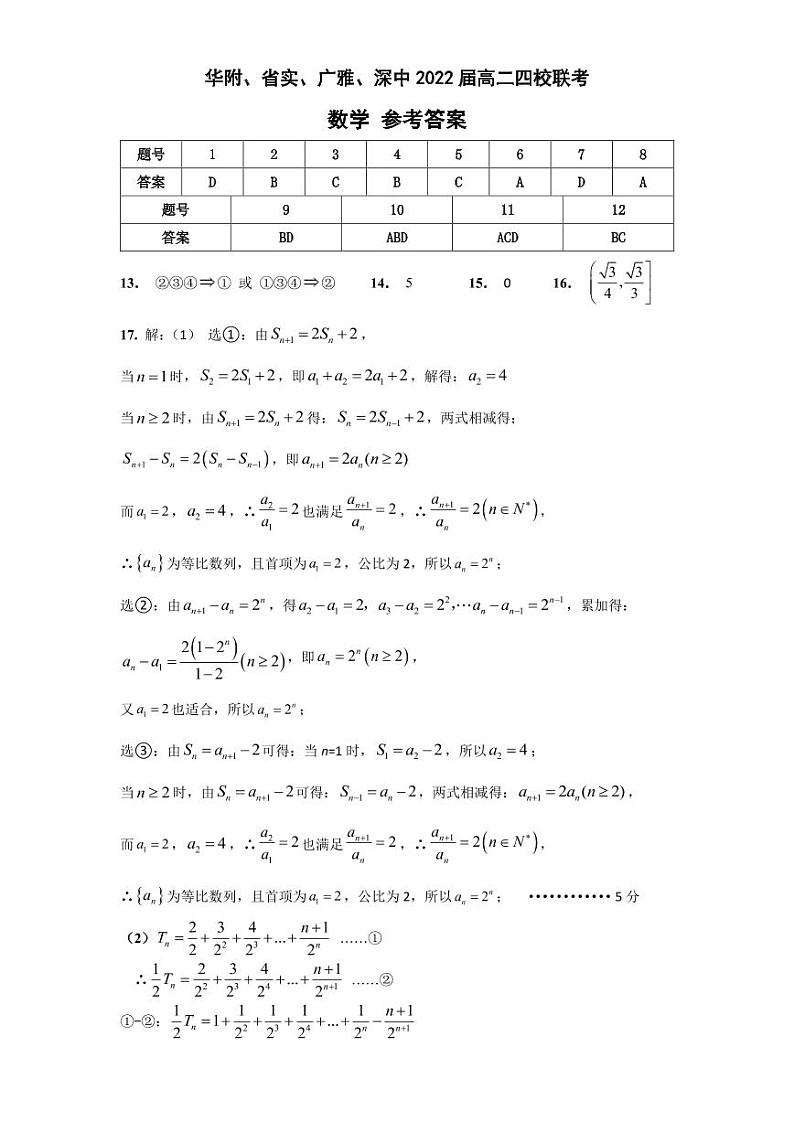 华附、省实、广雅、深中 2022 届高二四校联考
数学 参考答案
题号 1 2 3 4 5 6 7 8
答案 D B C B C A D A
题号 9 10 11 12
答案 BD ABD ACD BC
13. ②③④⇒① 或 ①③④⇒② 14. 5 15. 0 16. (√3/4, √3/3]
17. 解：（1） 选①：由 S_{n+1} = 2S_n + 2，
当 n = 1 时，S_2 = 2S_1 + 2，即 a_1 + a_2 = 2a_1 + 2，解得：a_2 = 4
当 n ≥ 2 时，由 S_{n+1} = 2S_n + 2 得：S_n = 2S_{n-1} + 2，两式相减得；
S_{n+1} − S_n = 2(S_n − S_{n-1})，即 a_{n+1} = 2a_n (n ≥ 2)
而 a_1 = 2，a_2 = 4，∴ a_2/a_1 = 2 也满足 a_{n+1}/a_n = 2，∴ a_{n+1}/a_n = 2(n ∈ N*)，
∴{a_n} 为等比数列，且首项为 a_1 = 2，公比为 2，所以 a_n = 2^n；
选②：由 a_{n+1} − a_n = 2^n，得 a_2 − a_1 = 2，a_3 − a_2 = 2^2，⋯ a_n − a_{n-1} = 2^{n-1}，累加得：
a_n − a_1 = 2(1−2^n)/(1−2) (n ≥ 2)，即 a_n = 2^n (n ≥ 2)，
又 a_1 = 2 也适合，所以 a_n = 2^n；
选③：由 S_n = a_{n+1} − 2 可得：当 n=1 时，S_1 = a_2 − 2，所以 a_2 = 4；
当 n ≥ 2 时，由 S_n = a_{n+1} − 2 可得：S_{n-1} = a_n − 2，两式相减得：a_{n+1} = 2a_n (n ≥ 2)，
而 a_1 = 2，a_2 = 4，∴ a_2/a_1 = 2 也满足 a_{n+1}/a_n = 2，∴ a_{n+1}/a_n = 2(n ∈ N*)，
∴{a_n} 为等比数列，且首项为 a_1 = 2，公比为 2，所以 a_n = 2^n； ············ 5 分
（2）T_n = 2/2 + 3/2^2 + 4/2^3 + ... + (n+1)/2^n ……①
∴ 1/2 T_n = 2/2^2 + 3/2^3 + 4/2^4 + ... + (n+1)/2^{n+1} ……②
①-②：1/2 T_n = 1 + 1/2^2 + 1/2^3 + 1/2^4 + ... + 1/2^n − (n+1)/2^{n+1}